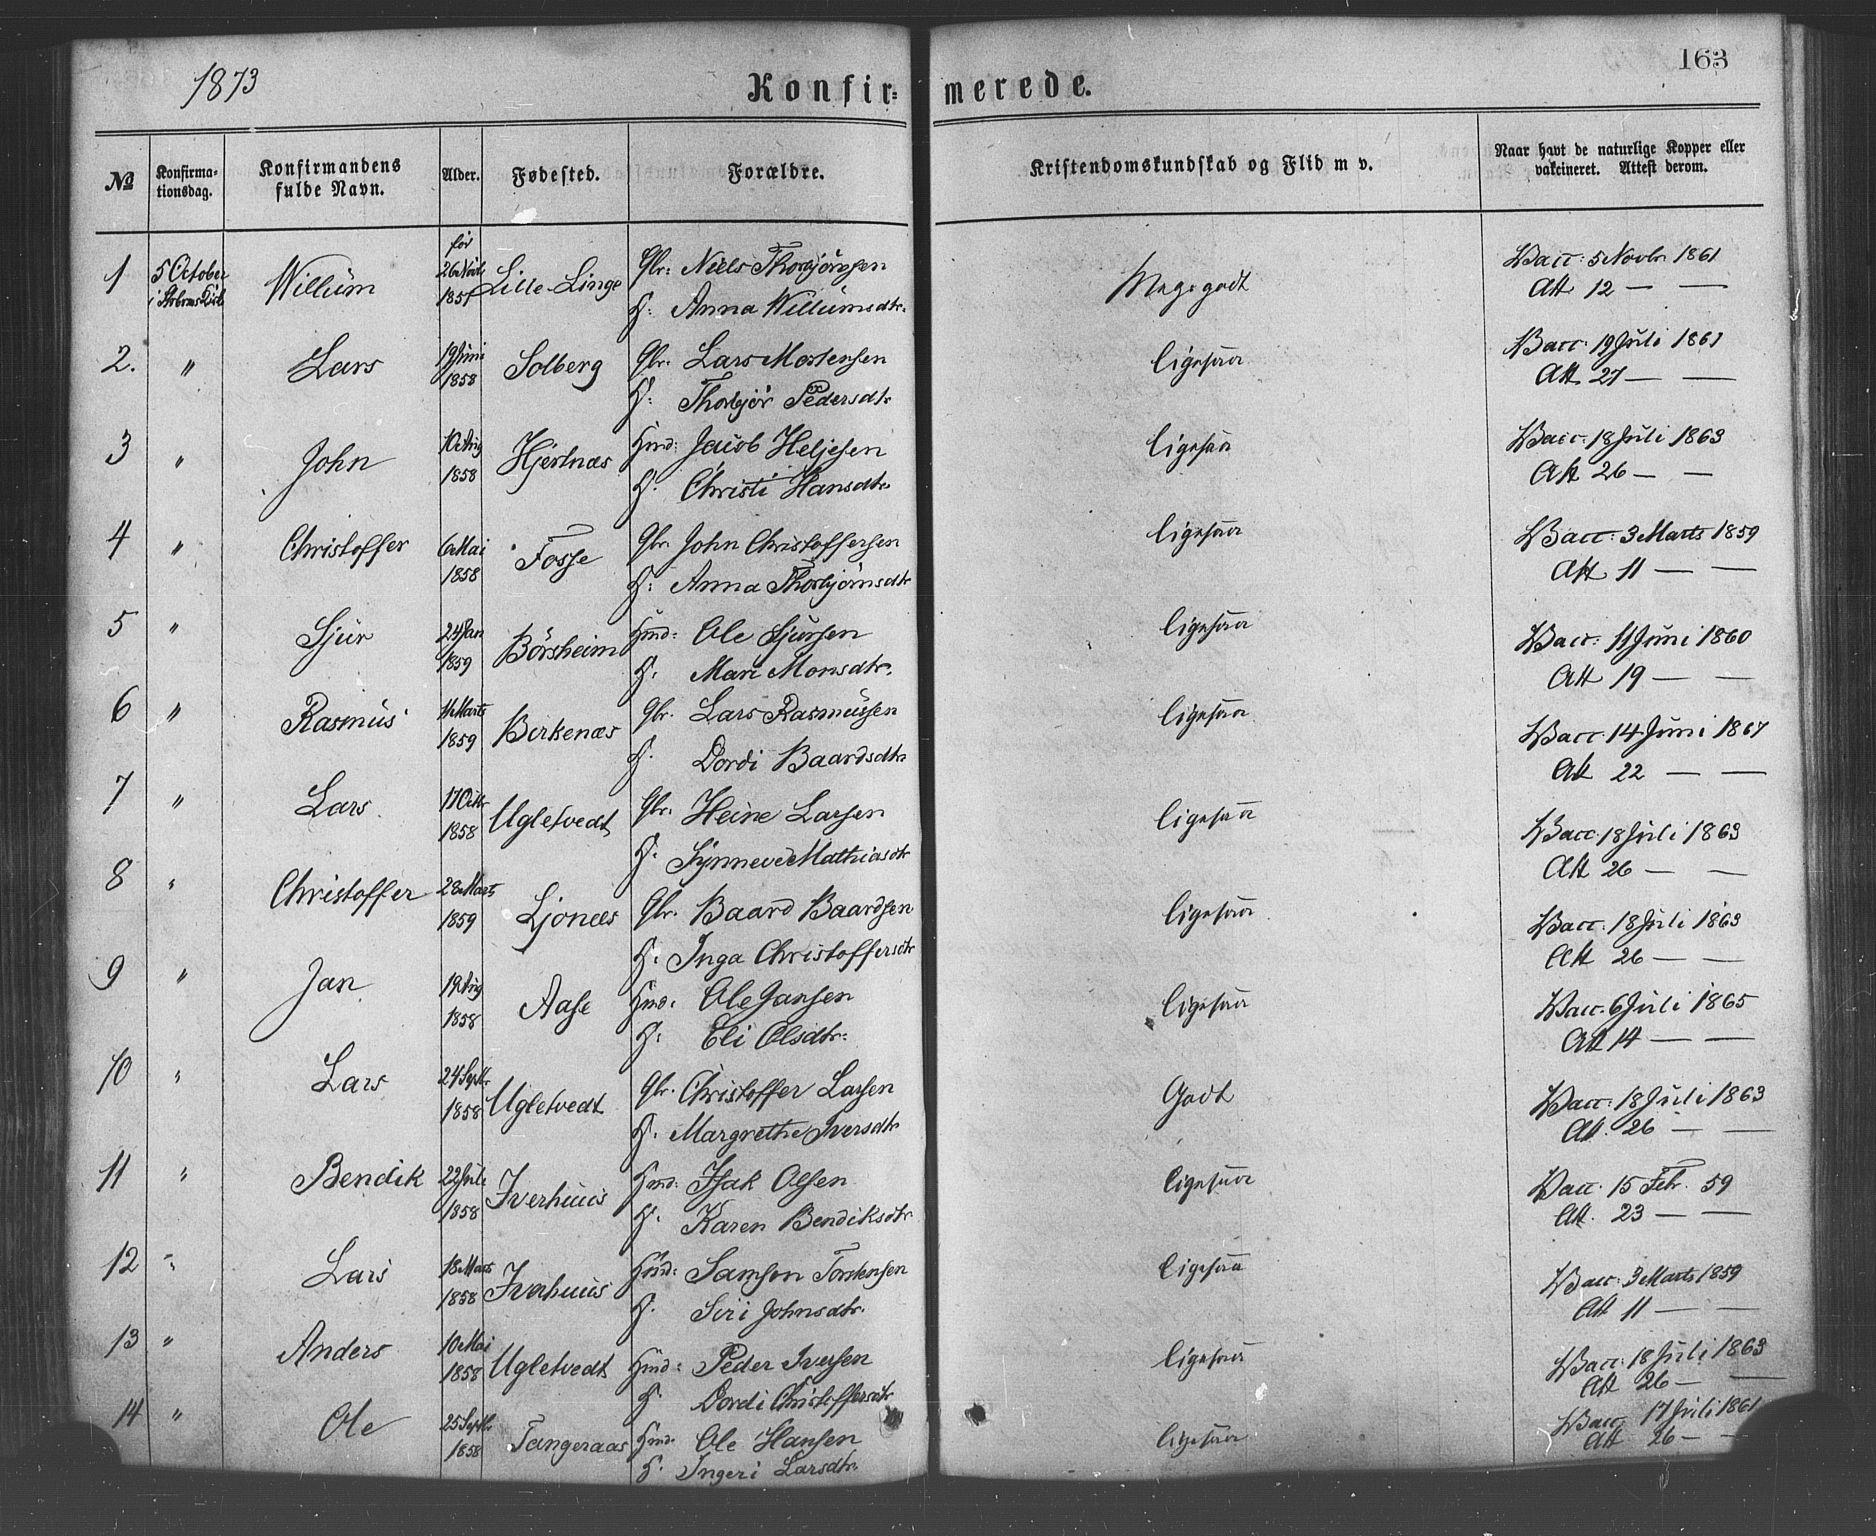 1873
Konfir= merede.
163
No
Konfirma-
tionsdag.
Konfirmandens
fulde Navn.
Alder.
Fødested.
Forældre.
Kristendomskundskab og Flid m v.
Naar havt de naturlige Kopper eller
vakcineret. Attest derom.
1 5 October Willum 1857 Lille-Linge Gbr: Niels Thorbjörnsen Meg. godt Vacc: 5 Novbr 1861
H: Anna Willumsdtr. Att 12 — —
2. " Lars 19 Juni 1858 Solberg Gbr. Lars Mortensen Ligesaa Vacc: 19 Juli 1861
H: Thorbjör Pedersdtr Att 27 — —
3 " John 10 Aug 1858 Hjertnæs Hmd: Jacob Heljesen Ligesaa Vacc: 18 Juli 1863
H. Christi Hansdtr. Att 26 — —
4 " Christoffer 6 Mai 1858 Fosse Gbr. John Christoffersen Ligesaa Vacc: 3 Marts 1859
H: Anna Thorbjörnsdtr Att 11 — —
5 " Sjur 24 Jan 1859 Börsheim Hmd: Ole Sjursen Ligesaa Vacc: 11 Juni 1860
H. Mari Monsdtr. Att 19 — —
6 " Rasmus Marts 1859 Birkenæs Gbr. Lars Rasmussen Ligesaa Vacc 14 Juni 1867
H. Dordi Baardsdtr Att 22 — —
7 " Lars 17 Octbr 1858 Ugletvedt Gbr. Heine Larsen Ligesaa Vacc: 18 Juli 1863
H. Synneve Mathiasdtr Att 26 — —
8 " Christoffer 28 Marts 1859 Ljonæs Gbr. Baard Baardsen Ligesaa Vacc: 18 Juli 1863
H: Inga Christoffersdtr Att 26 — —
9 " Jan 19 Aug 1858 Aase Hmd: Ole Jansen Ligesaa Vacc. 6 Juli 1865
H: Eli Olsdtr. Att 14 — —
10 " Lars 24 Septbr 1858 Ugletvedt Gbr. Christoffer Larsen Godt Vacc: 18 Juli 1863
H. Margrethe Iversdtr Att. 26 — —
11 " Bendik 22 Juli 1858 Iverhuus Hmd: Isak Olsen Ligesaa Vacc. 15 Febr. 59
H. Karen Bendiksdtr Att. 23 — —
12 " Lars 18 Marts 1858 Iverhuus Hmd: Samson Torstensen Ligesaa Vacc: 3 Marts 1859
H. Siri Johnsdtr. Att 11 — —
13 " Anders 10 Mai 1858 Ugletvedt Hmd: Peder Iversen Ligesaa Vacc: 18 Juli 1863
H. Dordi Christoffersdtr Att 26 — —
14 " Ole 25 Septbr 1858 Tangeraas Hmd. Ole Hansen Ligesaa Vacc 17 Juli 1861
H. Ingeri Larsdtr. Att 26 — —